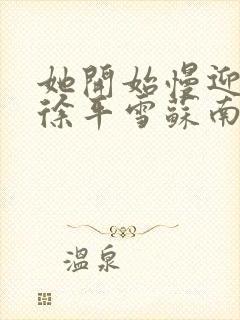 她開始慢迎
徐平雪蘇南
溫泉